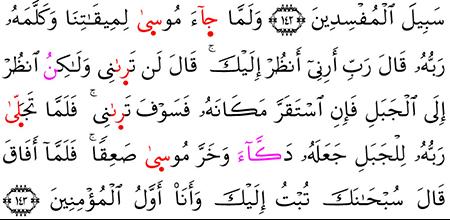 سَبِيلَ ٱلْمُفْسِدِينَ ١٤٢ وَلَمَّا جَآءَ مُوسَىٰ لِمِيقَـٰتِنَا وَكَلَّمَهُۥ
رَبُّهُۥ قَالَ رَبِّ أَرِنِىٓ أَنظُرْ إِلَيْكَ ۚ قَالَ لَن تَرَىٰنِى وَلَـٰكِنُ ٱنظُرْ
إِلَى ٱلْجَبَلِ فَإِنِ ٱسْتَقَرَّ مَكَانَهُۥ فَسَوْفَ تَرَىٰنِى ۚ فَلَمَّا تَجَلَّىٰ
رَبُّهُۥ لِلْجَبَلِ جَعَلَهُۥ دَكَّآءَ وَخَرَّ مُوسَىٰ صَعِقًا ۚ فَلَمَّآ أَفَاقَ
قَالَ سُبْحَـٰنَكَ تُبْتُ إِلَيْكَ وَأَنَا۠ أَوَّلُ ٱلْمُؤْمِنِينَ ١٤٣